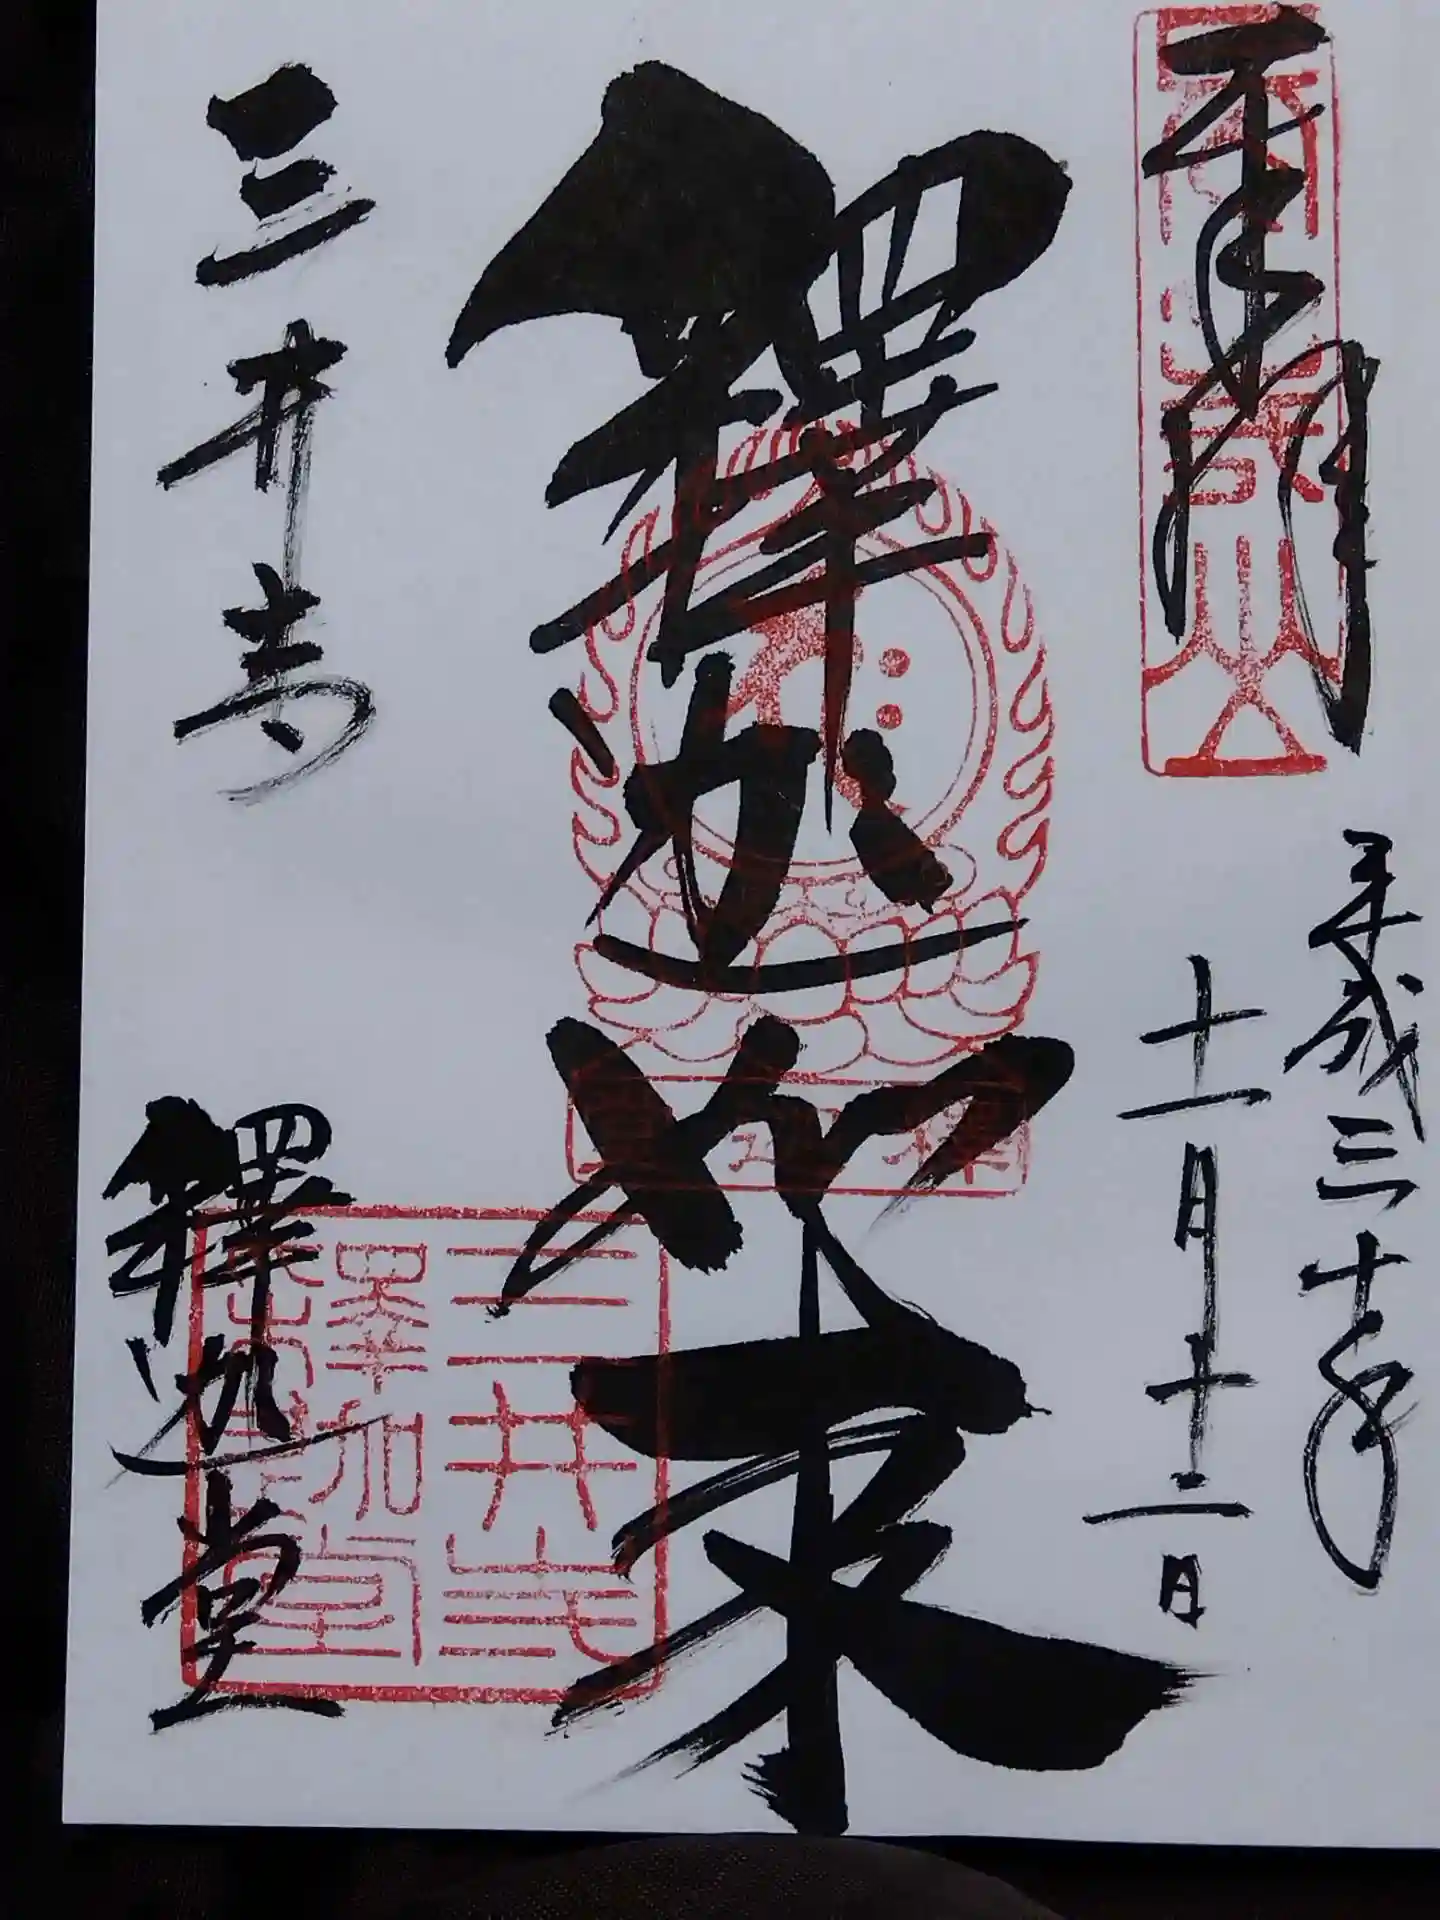 奉拝
平成三十年
十一月十二日
釋迦如来
三井寺
釋迦堂
三井寺
釋迦堂